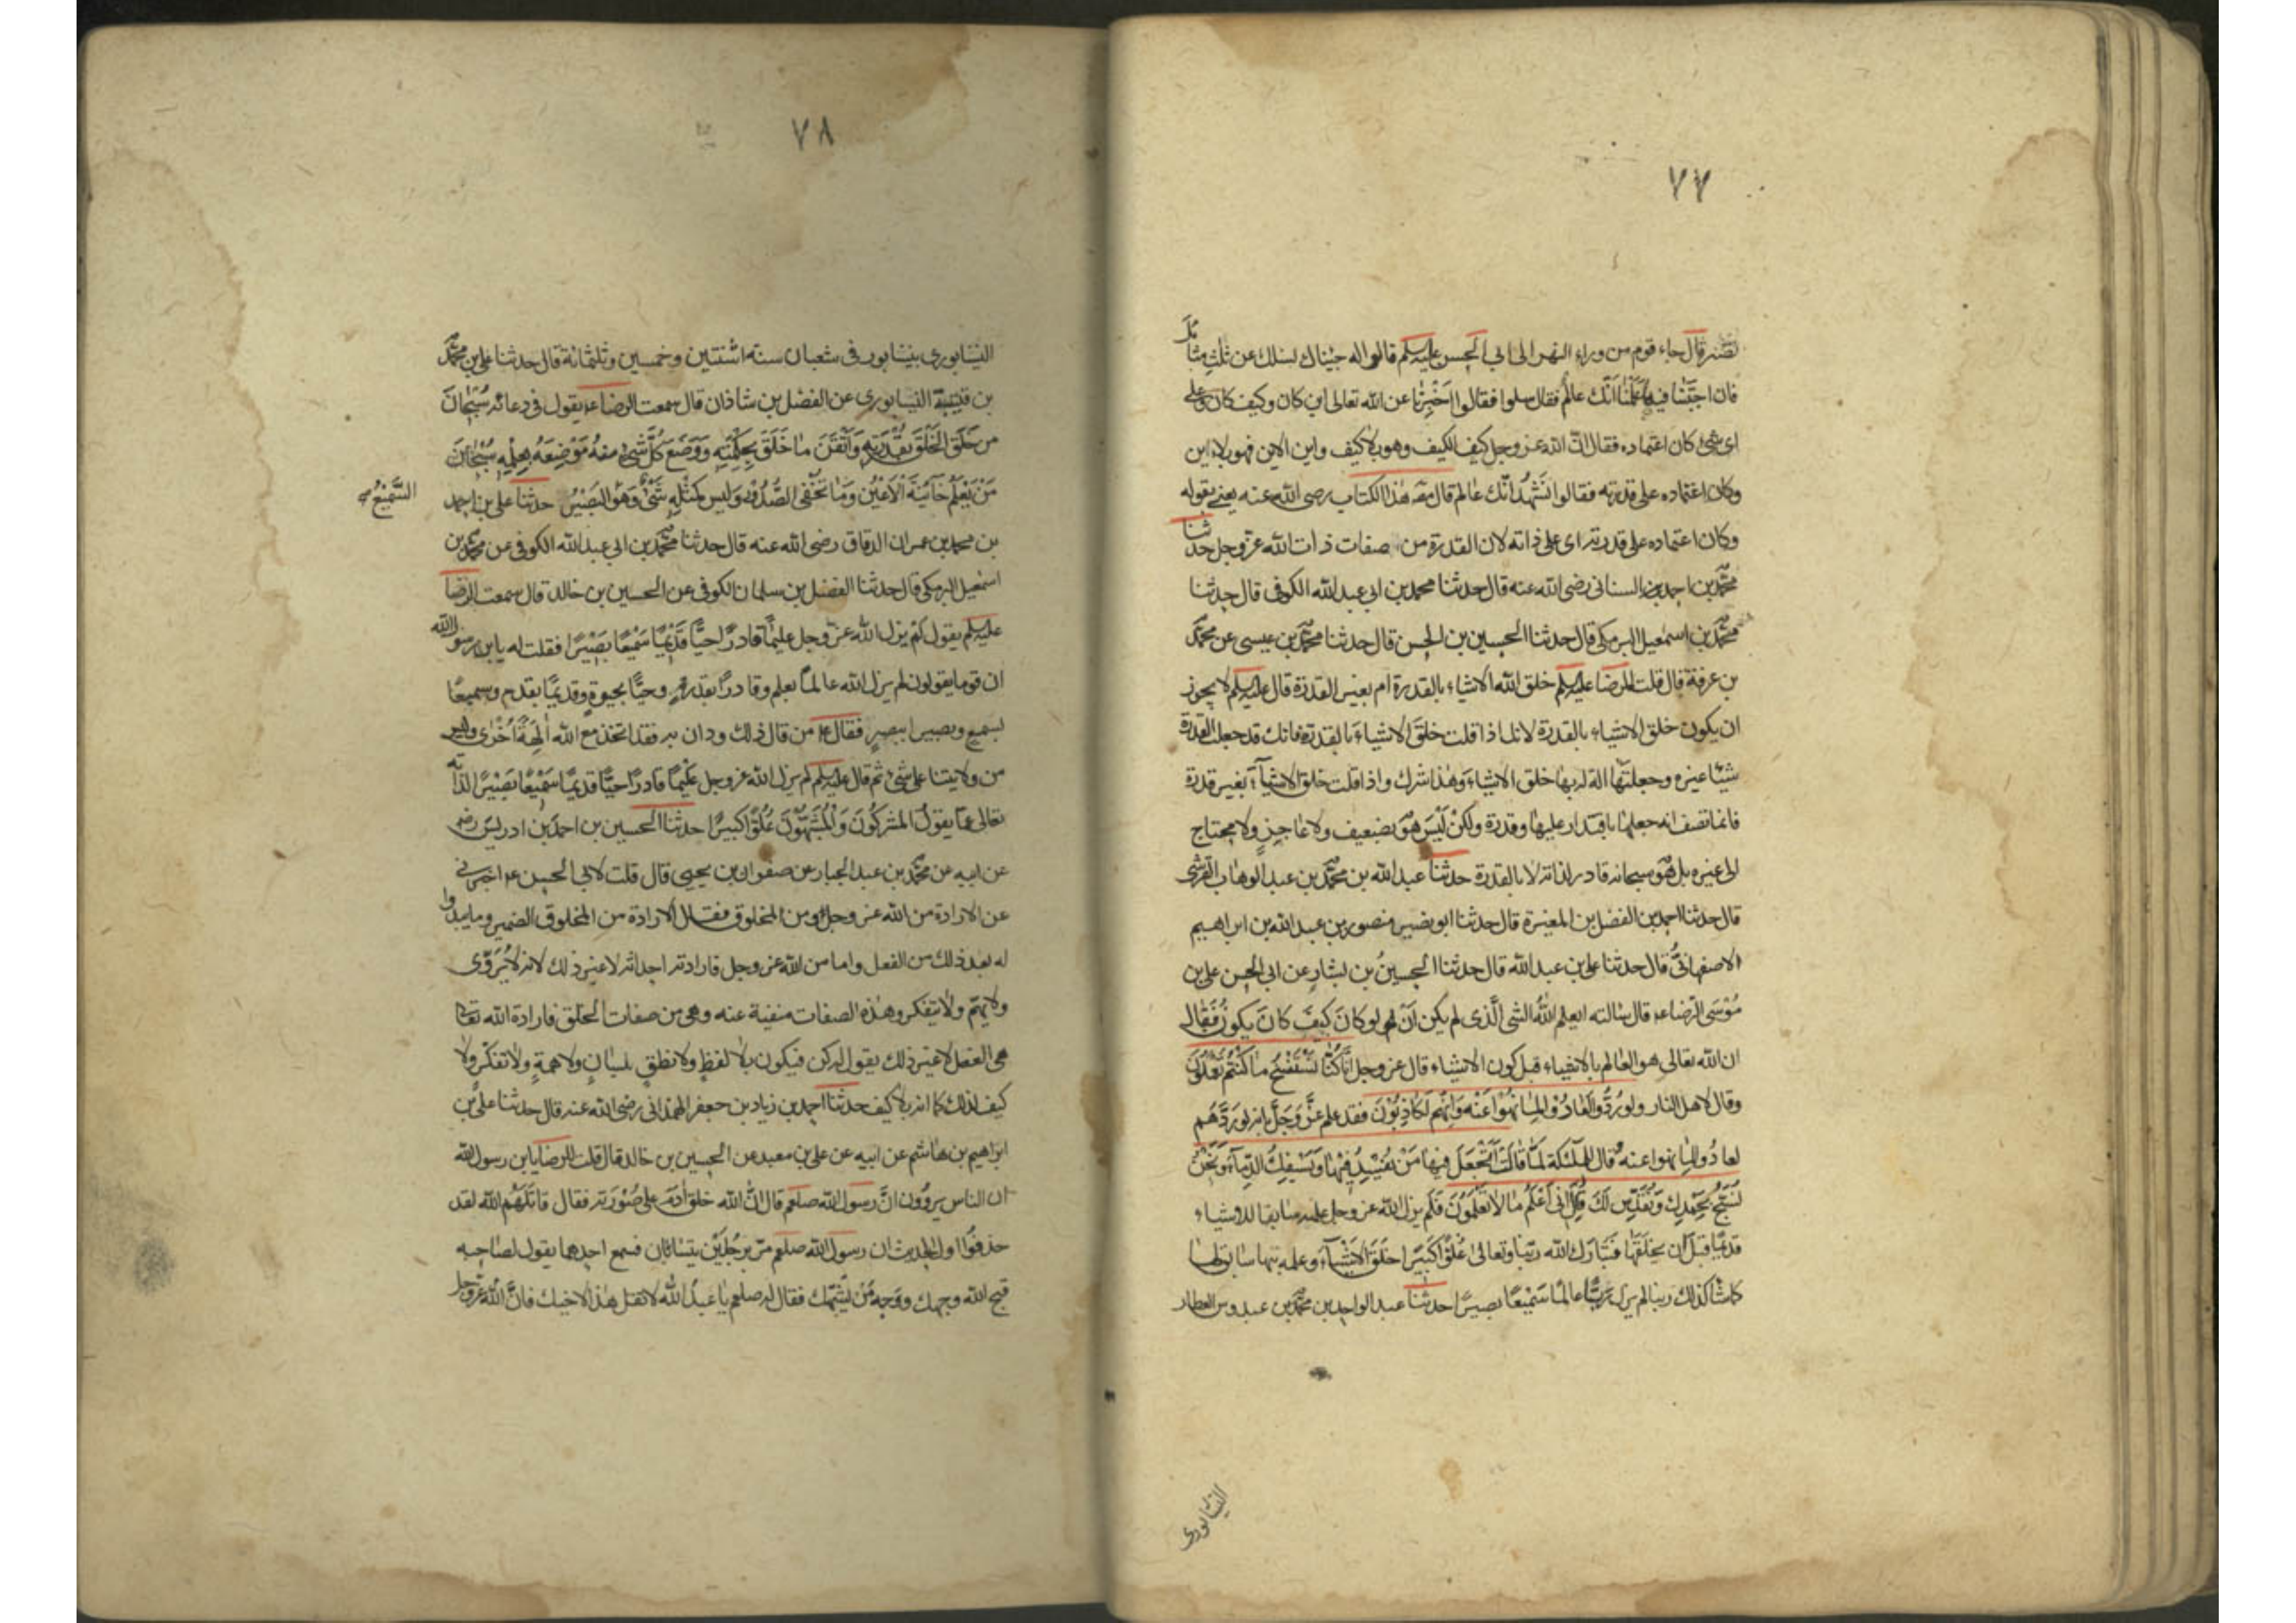 ٧٧
نصر قال جاء قوم من وراء النهر الى ابي الحسن عليه السلم قالوا له جيناك نسئلك عن ثلث مسائل
فان اجبتنا فيها علمنا انك عالم فقال سلوا فقالوا اخبرنا عن الله تعالى اين كان وكيف كان وعلى
اى شئ كان اعتماده فقال ان الله عز وجل كيف الكيف وهو بلا كيف واين الاين فهو بلا اين
وكان اعتماده على قدرته فقالوا نشهد انك عالم قال مصنف هذا الكتاب رضى الله عنه يعنى بقوله
وكان اعتماده على قدرته اى على ذاته لان القدرة من صفات ذات الله عز وجل حدثنا
محمد بن احمد السنانى رضى الله عنه قال حدثنا محمد بن ابى عبد الله الكوفى قال حدثنا
محمد بن اسمعيل البرمكى قال حدثنا الحسين بن الحسن قال حدثنا محمد بن عيسى عن محمد
بن عرفة قال قلت للرضا عليه السلم خلق الله الاشياء بالقدرة ام بغير القدرة قال عليه السلم لا يجوز
ان يكون خلق الاشياء بالقدرة لانك اذا قلت خلق الاشياء بالقدرة فانك قد جعلت القدرة
شيئا غيره وجعلتها آلة له بها خلق الاشياء وهذا شرك واذا قلت خلق الاشيآء بغير قدرة
فانما تصف انه جعلها باقتدار عليها وقدرة ولكن ليس هو بضعيف ولا عاجز ولا محتاج
الى غيره بل هو سبحانه قادر لذاته لا بالقدرة حدثنا عبد الله بن محمد بن عبد الوهاب القرشى
قال حدثنا احمد بن الفضل بن المغيرة قال حدثنا ابو نصير منصور بن عبد الله بن ابراهيم
الاصفهانى قال حدثنا على بن عبد الله قال حدثنا الحسين بن بشار عن ابى الحسن على بن
موسى الرضا ع قال سالته ايعلم الله الشى الذى لم يكن ان لو كان كيف كان يكون فقال
ان الله تعالى هو العالم بالاشياء قبل كون الاشياء قال عز وجل انا كنا نستنسخ ما كنتم تعملون
وقال لاهل النار ولو ردوا لعادوا لما نهوا عنه وانهم لكاذبون فقد علم عز وجل بانه لو ردهم
لعادوا لما نهوا عنه وقال للملئكة لما قالت اتجعل فيها من يفسد فيها ويسفك الدمآء ونحن
نسبح بحمدك ونقدس لك قال انى اعلم ما لا تعلمون فلم يزل الله عز وجل علمه سابقا للاشياء
قديما قبل ان يخلقها فتبارك الله ربنا وتعالى علوا كبيرا خلق الاشيآء وعلمه بها سابق لها
كما شآ كذلك ربنا لم يزل ربنا عالما سميعا بصيرا حدثنا عبد الواحد بن محمد بن عبدوس العطار
النيسابورى
٧٨
النيسابورى بنيسابور فى شعبان سنه اثنتين وخمسين وثلثمائة قال حدثنا على بن محمد
بن قتيبة النيسابورى عن الفضل بن شاذان قال سمعت الرضا ع يقول فى دعائه سبحان
من خلق الخلق بقدرته واتقن ما خلق بحكمته ووضع كل شئ منه موضعه بعلمه سبحان
من يعلم خآئنة الاعين وما تخفى الصدور وليس كمثله شئ وهو البصير حدثنا على بن احمد
السميع
بن محمد بن عمران الدقاق رضى الله عنه قال حدثنا محمد بن ابى عبد الله الكوفى عن محمد بن
اسمعيل البرمكى قال حدثنا الفضل بن سلمان الكوفى عن الحسين بن خالد قال سمعت الرضا
عليه السلم يقول لم يزل الله عز وجل عليما قادرا حيا قديما سميعا بصيرا فقلت له يا بن رسول الله
ان قوما يقولون لم يزل الله عالما بعلم وقادرا بقدرة وحيا بحيوة وقديما بقدم وسميعا
بسمع وبصيرا ببصر فقال ع من قال ذلك ودان به فقد اتخذ مع الله آلهة اخرى وليس
من ولايتنا على شئ ثم قال عليه السلم لم يزل الله عز وجل عليما قادرا حيا قديما سميعا بصيرا لذاته
تعالى عما يقول المشركون والمشبهون علوا كبيرا حدثنا الحسين بن احمد بن ادريس رضه
عن ابيه عن محمد بن عبد الجبار عن صفوان بن يحيى قال قلت لابى الحسن ع اخبرنى
عن الارادة من الله عز وجل ومن المخلوق فقال الارادة من المخلوق الضمير وما يبدوا
له بعد ذلك من الفعل واما من الله عز وجل فارادته احداثه لا غير ذلك لانه لا يروى
ولا يهم ولا يتفكر وهذه الصفات منفية عنه وهى من صفات الخلق فارادة الله تعالى
هى الفعل لا غير ذلك يقول له كن فيكون بلا لفظ ولا نطق بلسان ولا همة ولا تفكر ولا
كيف لذلك كما انه بلا كيف حدثنا احمد بن زياد بن جعفر الهمدانى رضى الله عنه قال حدثنا على بن
ابراهيم بن هاشم عن ابيه عن على بن معبد عن الحسين بن خالد قال قلت للرضا يا بن رسول الله
ان الناس يروون ان رسول الله صلعم قال ان الله خلق آدم على صورته فقال قاتلهم الله لقد
حذفوا اول الحديث ان رسول الله صلعم مر برجلين يتسابان فسمع احدهما يقول لصاحبه
قبح الله وجهك ووجه من يشبهك فقال له صلعم يا عبد الله لا تقل هذا لاخيك فان الله عز وجل